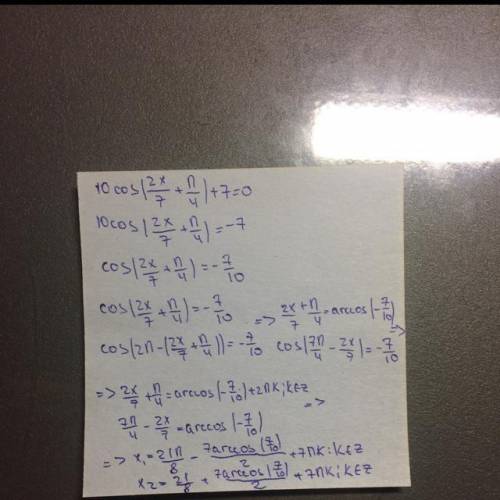 10cos(2x/7 + π/4) + 7 = 0
10cos(2x/7 + π/4) = -7
cos(2x/7 + π/4) = -7/10
cos(2x/7 + π/4) = -7/10 => 2x/7 + π/4 = arccos(-7/10) =>
cos(2π - (2x/7 + π/4)) = -7/10 cos(7π/4 - 2x/7) = -7/10
=> 2x/7 + π/4 = arccos(-7/10) + 2πK; K∈Z
7π/4 - 2x/7 = arccos(-7/10) =>
=> x₁ = 21π/8 - 7arccos(7/10)/2 + 7πK; K∈Z
x₂ = 21/8 + 7arccos(7/10)/2 + 7πK; K∈Z